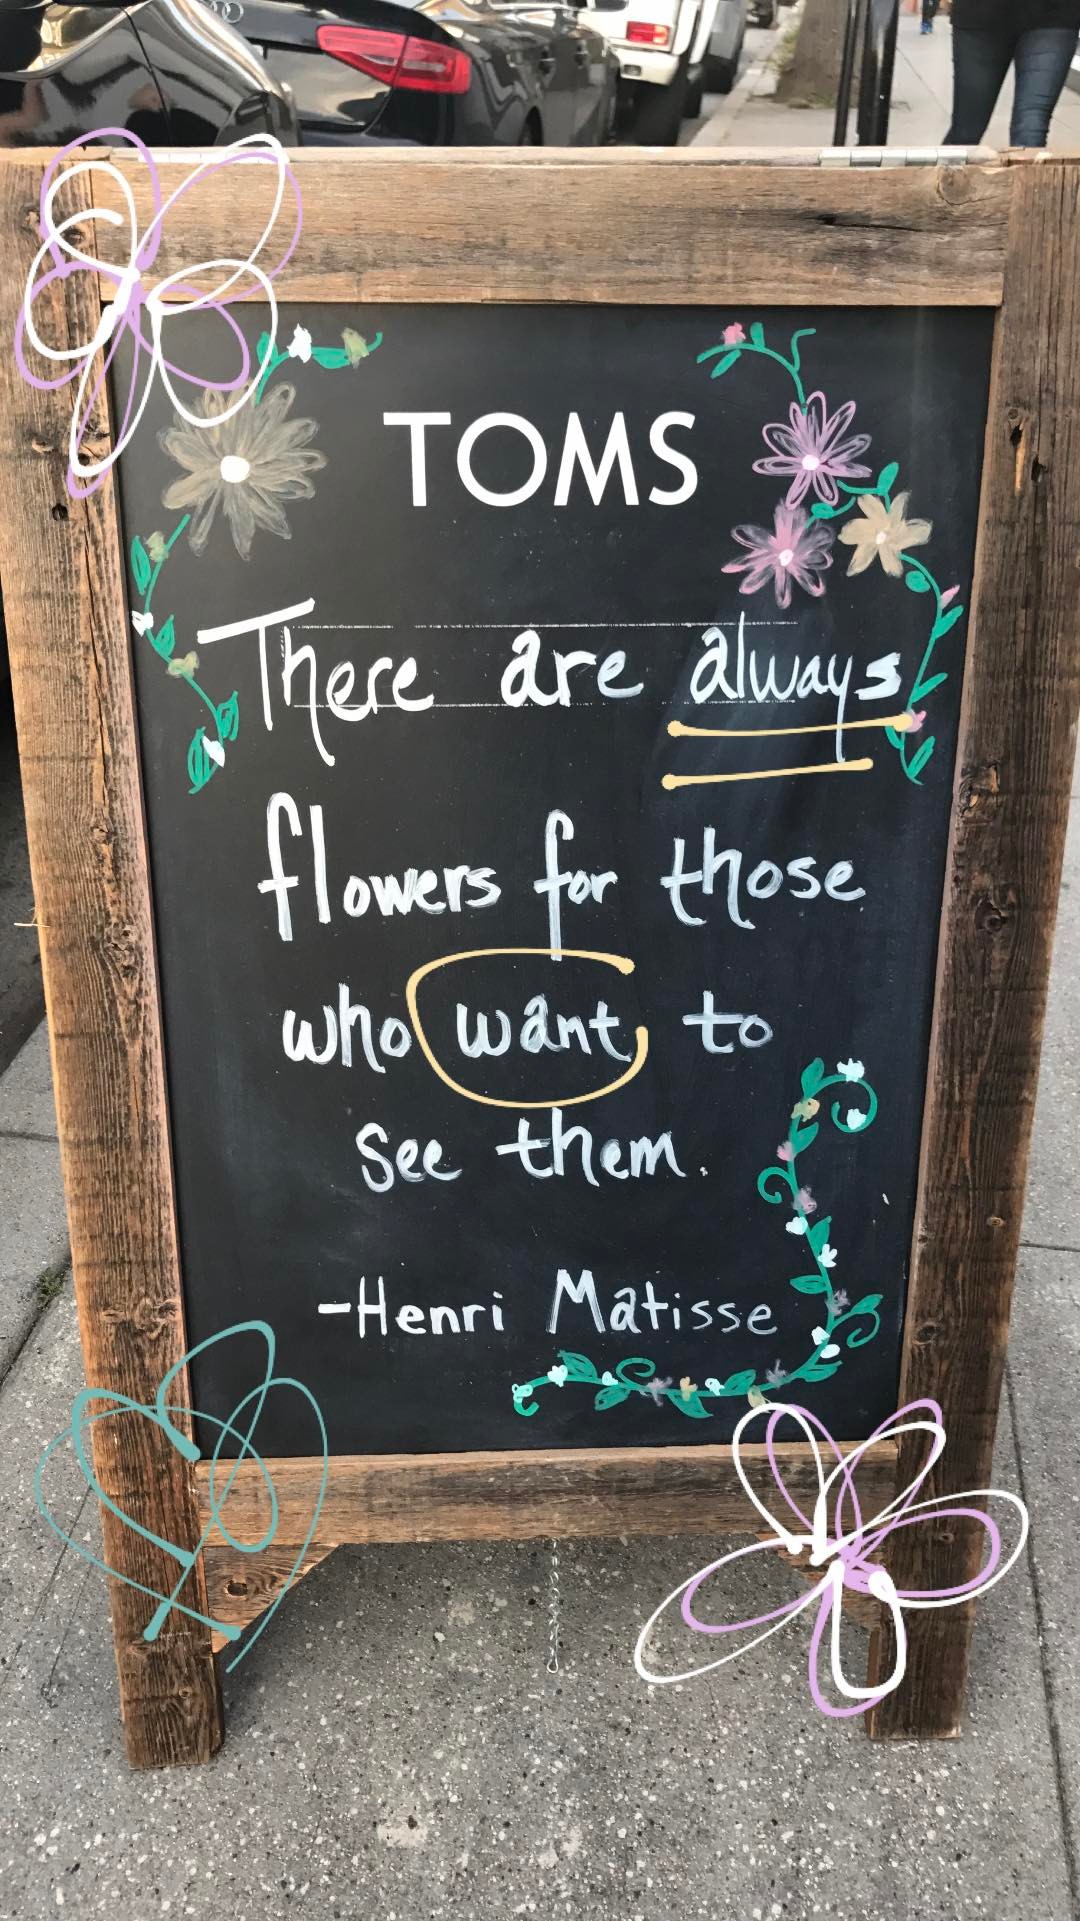 TOMS
There are always
flowers for those
who want to
see them.
-Henri Matisse